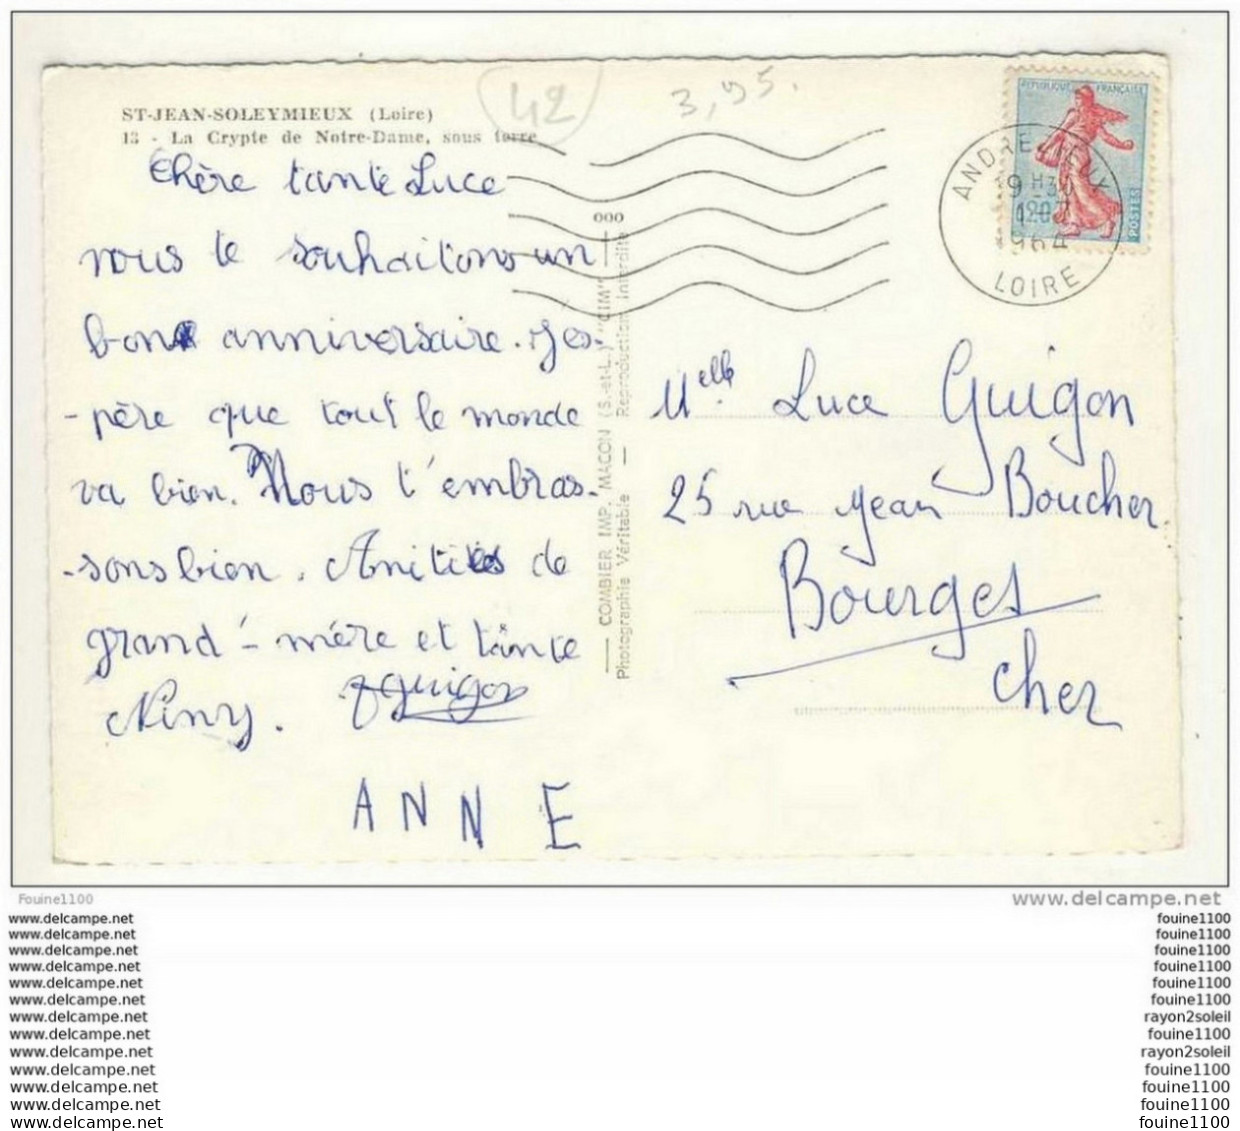 ST-JEAN-SOLEYMIEUX (Loire)
13 - La Crypte de Notre-Dame, sous terre
42
3,95.
Chère tante Luce
nous te souhaitons un
bon anniversaire. Jes-
-père que tout le monde
va bien. Nous t'embras-
-sons bien. Amitiés de
grand'-mère et tante
Niny. Guigon
ANNE
COMBIER IMP. MACON (S.-et-L.) "CIM"
Photographie Véritable — Reproduction Interdite
REPUBLIQUE FRANÇAISE
POSTES
19 H 30
12
1964
LOIRE
Melle Luce Guigon
25 rue Jean Boucher
Bourges
Cher
Fouine1100
www.delcampe.net
www.delcampe.net fouine1100
www.delcampe.net fouine1100
www.delcampe.net fouine1100
www.delcampe.net fouine1100
www.delcampe.net fouine1100
www.delcampe.net fouine1100
www.delcampe.net rayon2soleil
www.delcampe.net fouine1100
www.delcampe.net rayon2soleil
www.delcampe.net fouine1100
www.delcampe.net fouine1100
www.delcampe.net fouine1100
www.delcampe.net fouine1100